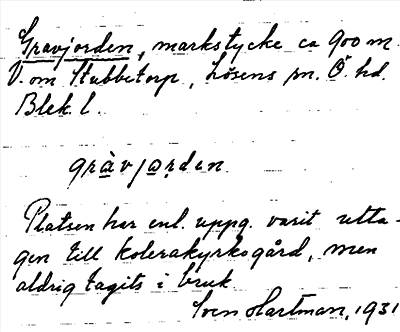 Gravjorden, markstycke ca 900 m.
V. om Stubbetorp, Lösens sn. Ö. hd.
Blek. l.
gràvjo̲ṛden
Platsen har enl. uppg. varit utta-
gen till kolerakyrkogård, men
aldrig tagits i bruk.
Sven Hartman, 1931